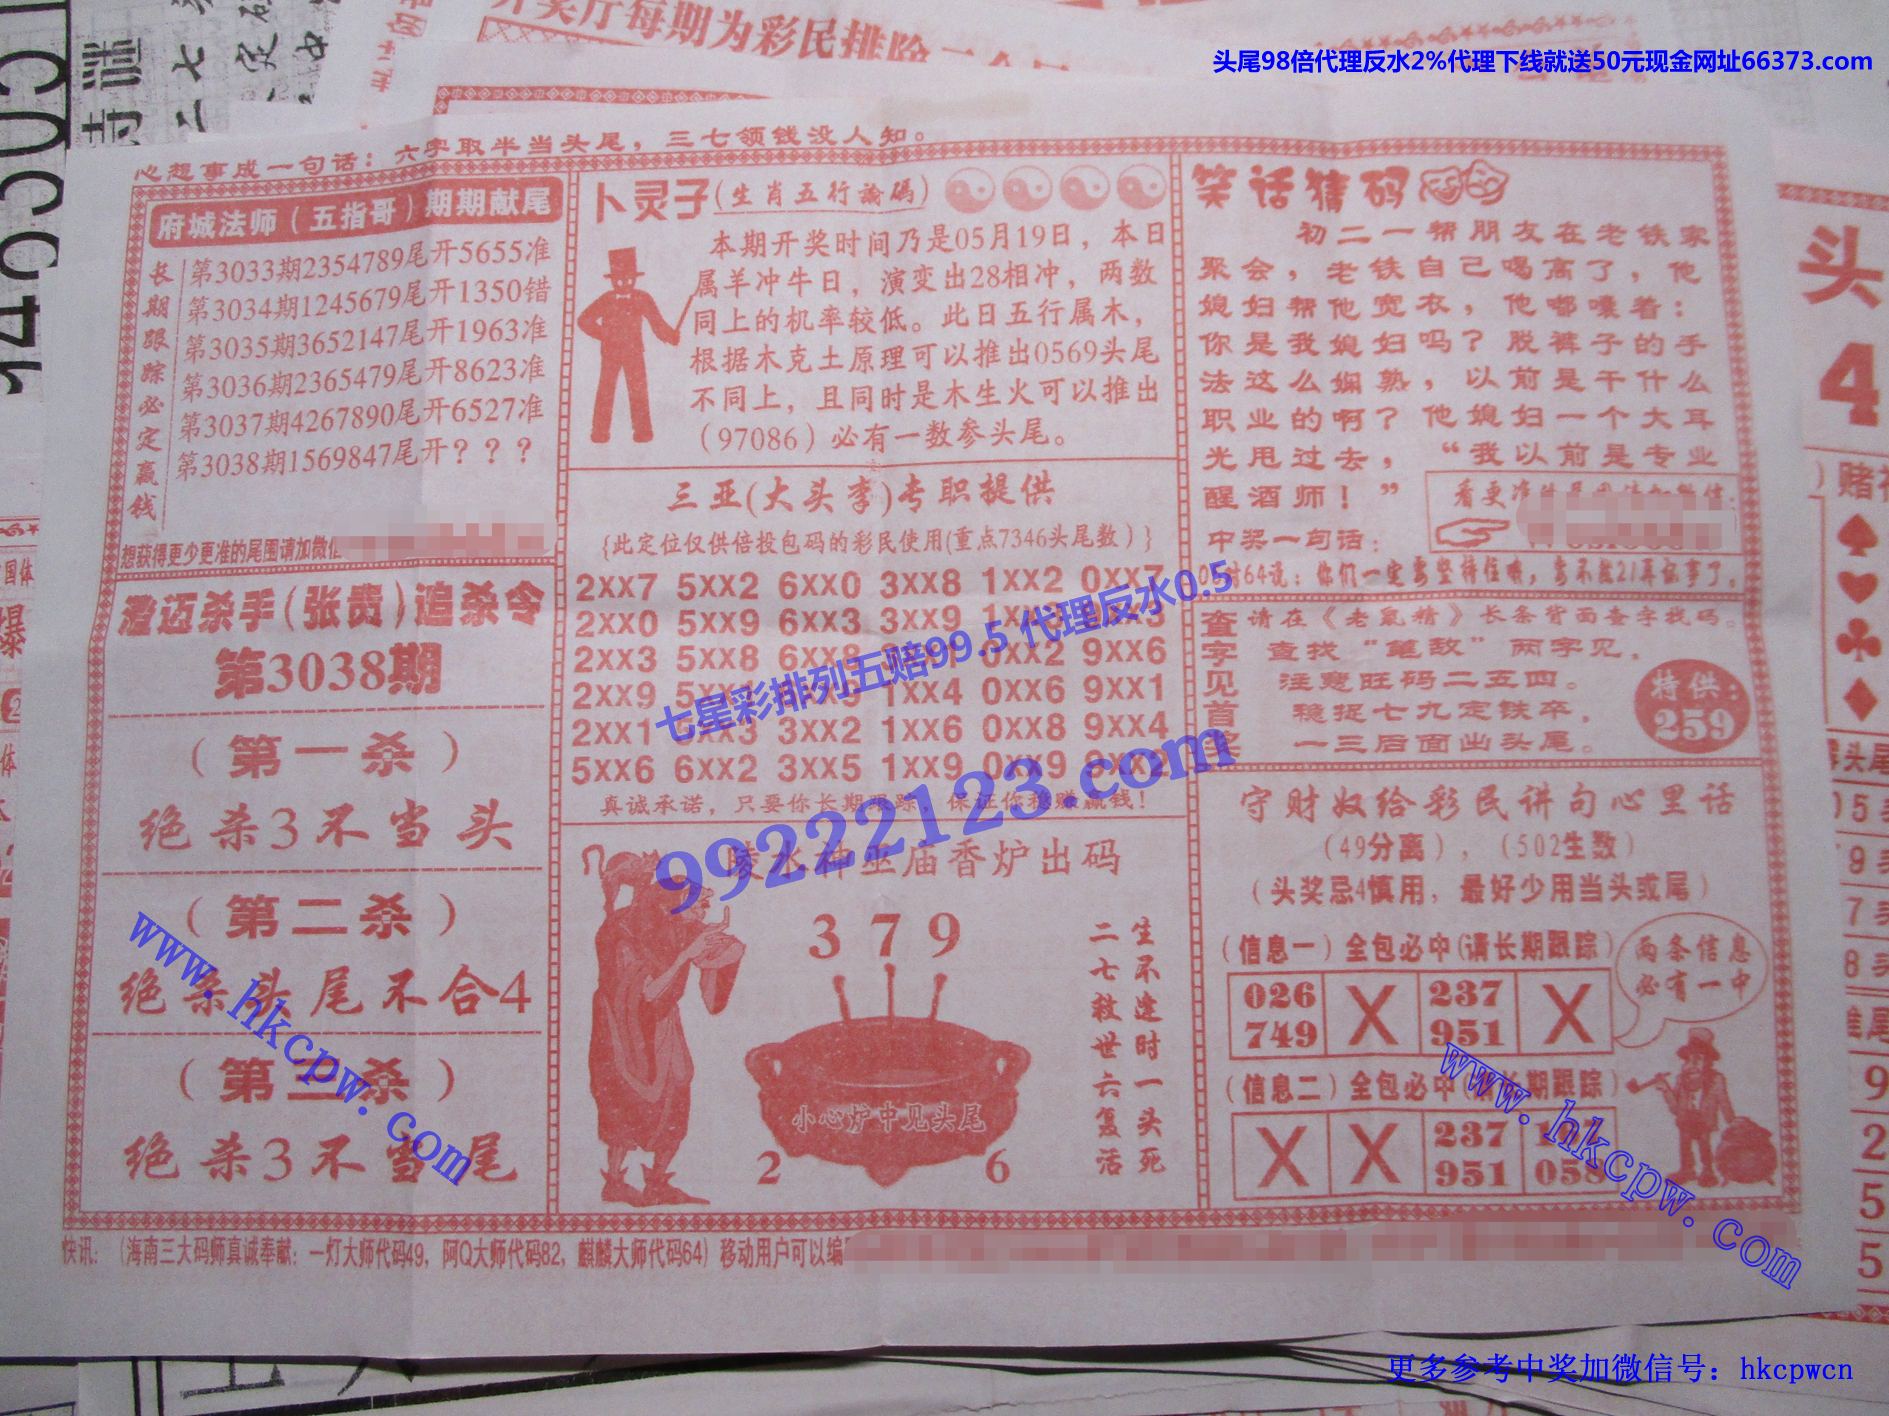 开奖厅每期为彩民排险
头尾98倍代理反水2%代理下线就送50元现金网址66373.com
心想事成一句话：六字取半当头尾，三七领钱没人知。
府城法师（五指哥）期期献尾
长期跟踪必定赢钱
第3033期2354789尾开5655准
第3034期1245679尾开1350错
第3035期3652147尾开1963准
第3036期2365479尾开8623准
第3037期4267890尾开6527准
第3038期1569847尾开？？？
想获得更少更准的尾围请加微信
澄迈杀手(张贵)追杀令
第3038期
（第一杀）
绝杀3不当头
（第二杀）
绝杀头尾不合4
（第三杀）
绝杀3不当尾
卜灵子(生肖五行論碼)
本期开奖时间乃是05月19日，本日
属羊冲牛日，演变出28相冲，两数
同上的机率较低。此日五行属木，
根据木克土原理可以推出0569头尾
不同上，且同时是木生火可以推出
（97086）必有一数参头尾。
三亚(大头李)专职提供
{此定位仅供倍投包码的彩民使用(重点7346头尾数)}
2XX7 5XX2 6XX0 3XX8 1XX2 0XX7
2XX0 5XX9 6XX3 3XX9
2XX3 5XX8 6XX8 0XX2 9XX6
2XX9 1XX4 0XX6 9XX1
2XX1 3XX2 1XX6 0XX8 9XX4
5XX6 6XX2 3XX5 1XX9 0XX9 9XX2
真诚承诺，只要你长期跟踪，保证你稳赚赢钱！
七星彩排列五赔99.5 代理反水0.5
99222123.com
陵水神巫庙香炉出码
3 7 9
小心炉中见头尾
2 6
生不逢时一头死
二七救世六复活
笑话猜码
初二一帮朋友在老铁家
聚会，老铁自己喝高了，他
媳妇帮他宽衣，他嘟囔着：
你是我媳妇吗？脱裤子的手
法这么娴熟，以前是干什么
职业的啊？他媳妇一个大耳
光甩过去，“我以前是专业
醒酒师！”
看更准
中奖一句话：
05对64说：你们一定要坚持住哦，
查字见首奖
请在《老鼠精》长条背面查字找码。
查找“笔敌”两字见，
注意旺码二五四。
稳捉七九定铁卒，
一三后面出头尾。
特供：
259
守财奴给彩民讲句心里话
（49分离），（502生数）
（头奖忌4慎用，最好少用当头或尾）
（信息一）全包必中(请长期跟踪)
026 X 237 X
749 951
两条信息
必有一中
（信息二）全包必中(请长期跟踪)
X X 237
951 058
快讯：（海南三大码师真诚奉献：一灯大师代码49，阿Q大师代码82，麒麟大师代码64）移动用户可以编
www.hkcpw.com
www.hkcpw.com
头
4
更多参考中奖加微信号：hkcpwcn